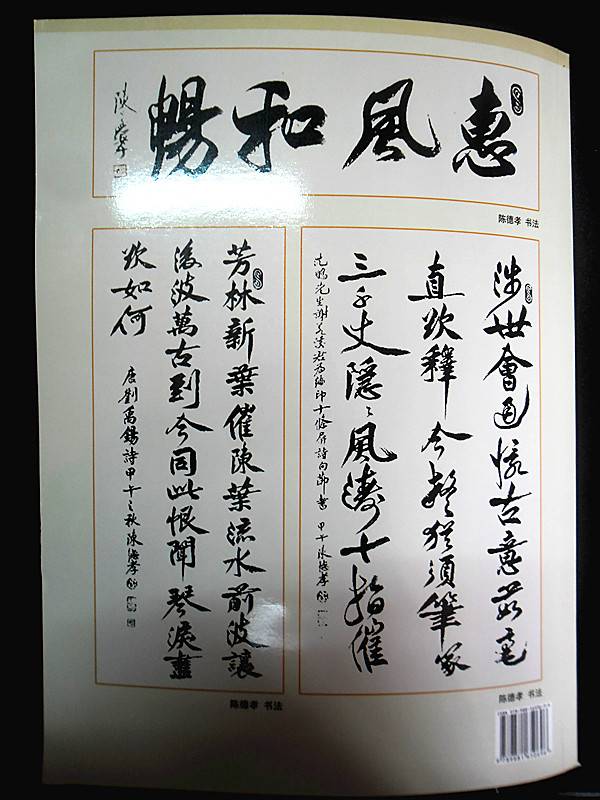 惠風和暢
陈德孝 书法
涉世會通懷古意茹毫
直欲釋今疑猶須筆冢
三千丈隱〻風濤十指催
甲午陳德孝
陈德孝 书法
芳林新葉催陳葉流水前波讓
後波萬古到今同此恨聞琴淚盡
欲如何
唐劉禹錫詩甲午之秋陳德孝
陈德孝 书法